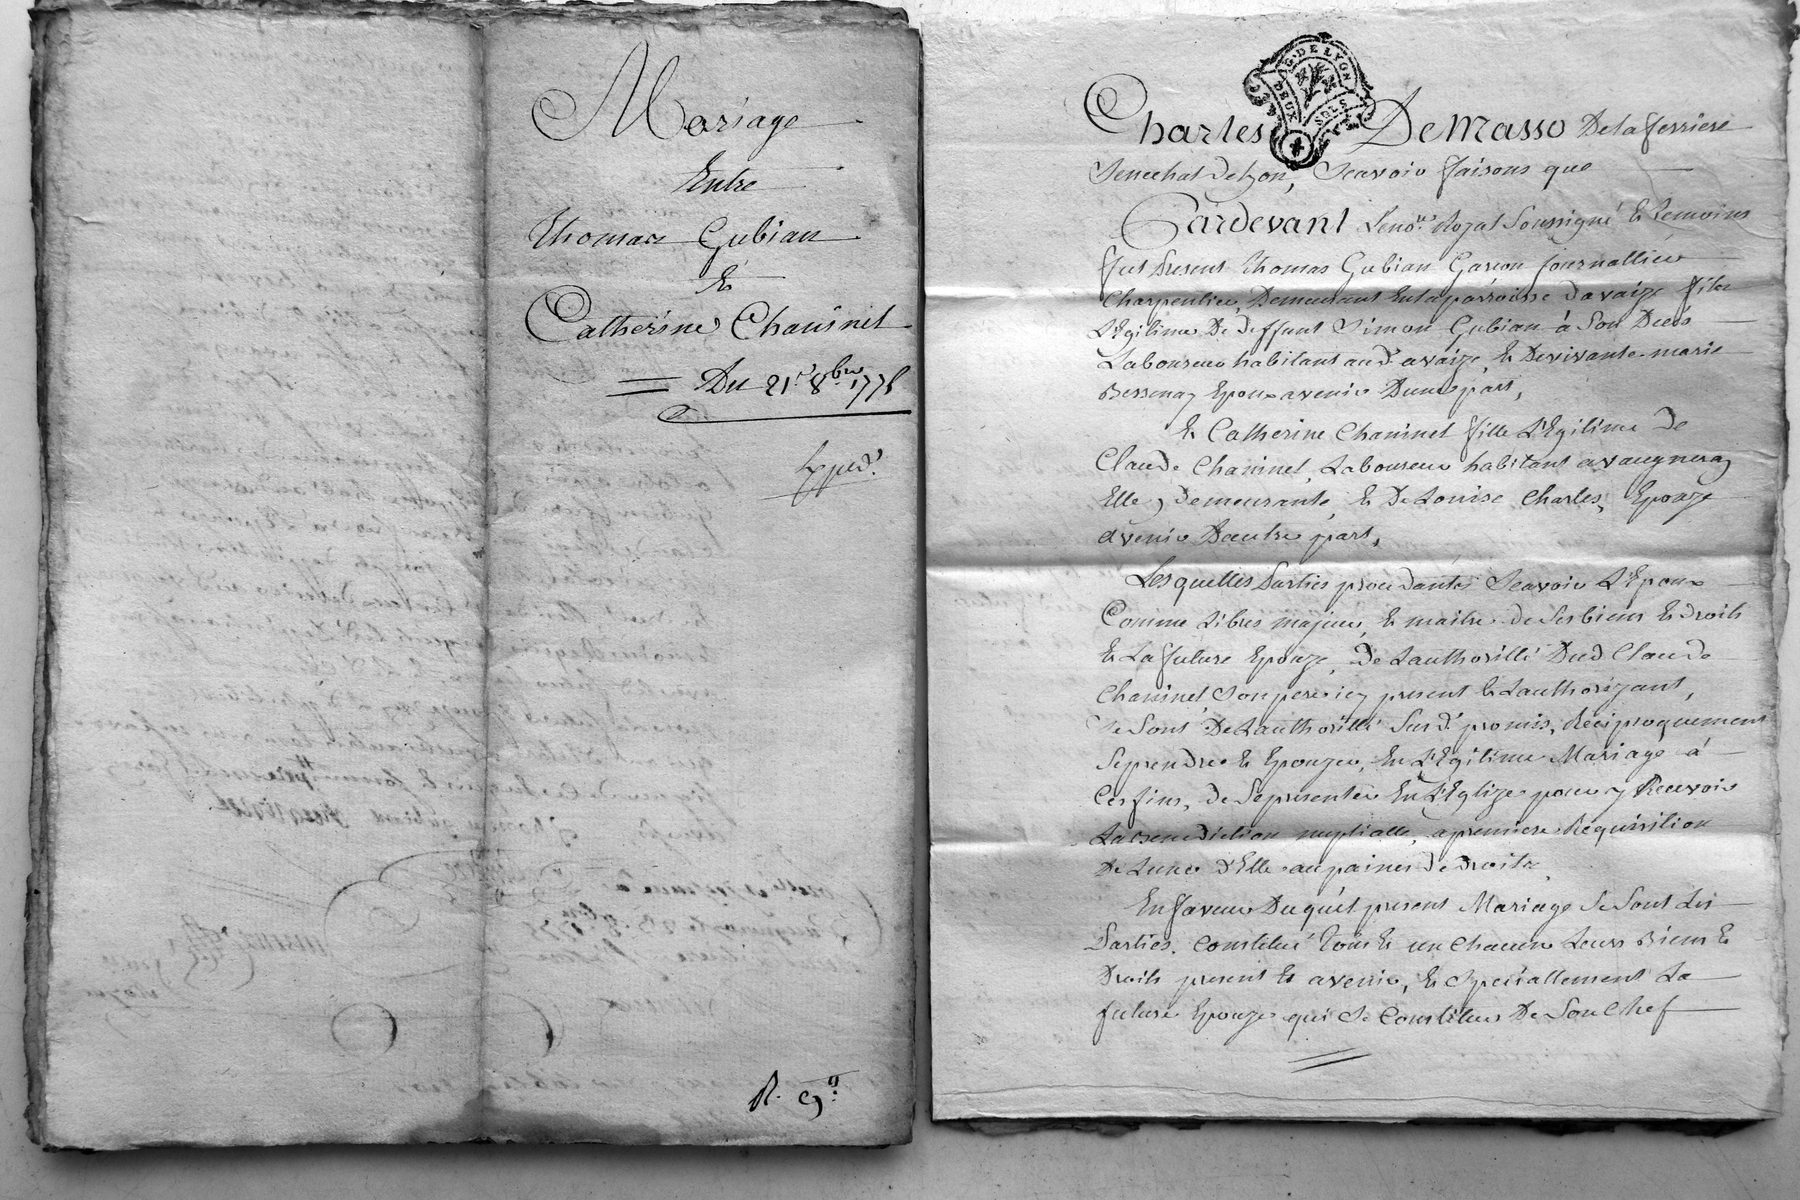 Mariage
Entre
Thomas Gubian
Et
Catherine Chaninet
Du 21.e 8.bre 1775
Exped.
R. g.o
G. DE LYON
DEUX SOLS
Charles De Masso De la ferriere
Senechal De Lyon, Scavoir faisons que
Pardevant Le no.re Royal Soussigné Et Temoins
fut Present Thomas Gubian Garcon Journallier
Charpentier Demeurant En la parroisse davaize fils
L'Egitime De deffunt Simon Gubian à Son Decès
Laboureur habitant aud. avaize, Et De vivante marie
Bessenay Epoux avenir Dune part,
Et Catherine Chaninet fille L'Egitime De
Claude Chaninet, Laboureur habitant a vaugneray
Elle y demeurante, Et De Louise Charles, Epouze
avenir Dautre part,
Les quelles Parties procedantes Scavoir L'Epoux
Comme Libres majeur, Et maitre de Ses biens Et droits
Et La future Epouze, De Lauthorité Dud Claude
Chaninet, Son pere icy present Et Lauthorizant,
Se Sont De Lauthorité Susd. promis, Réciproquement
Se prendre Et Epouzer, En L'Egitime Mariage à
Ces fins, de Se presenter En L'Eglize pour y Recevoir
La Benediction nuptialle, a premiere Requisition
De Lune d'Elle aux paines de droits
En faveur Duquel present Mariage Se Sont Les
Parties. Constitué Tous Et un chacun Leurs Biens Et
Droits present Et avenir, Et Speciallement La
future Epouze qui Se Constitue De Son Chef